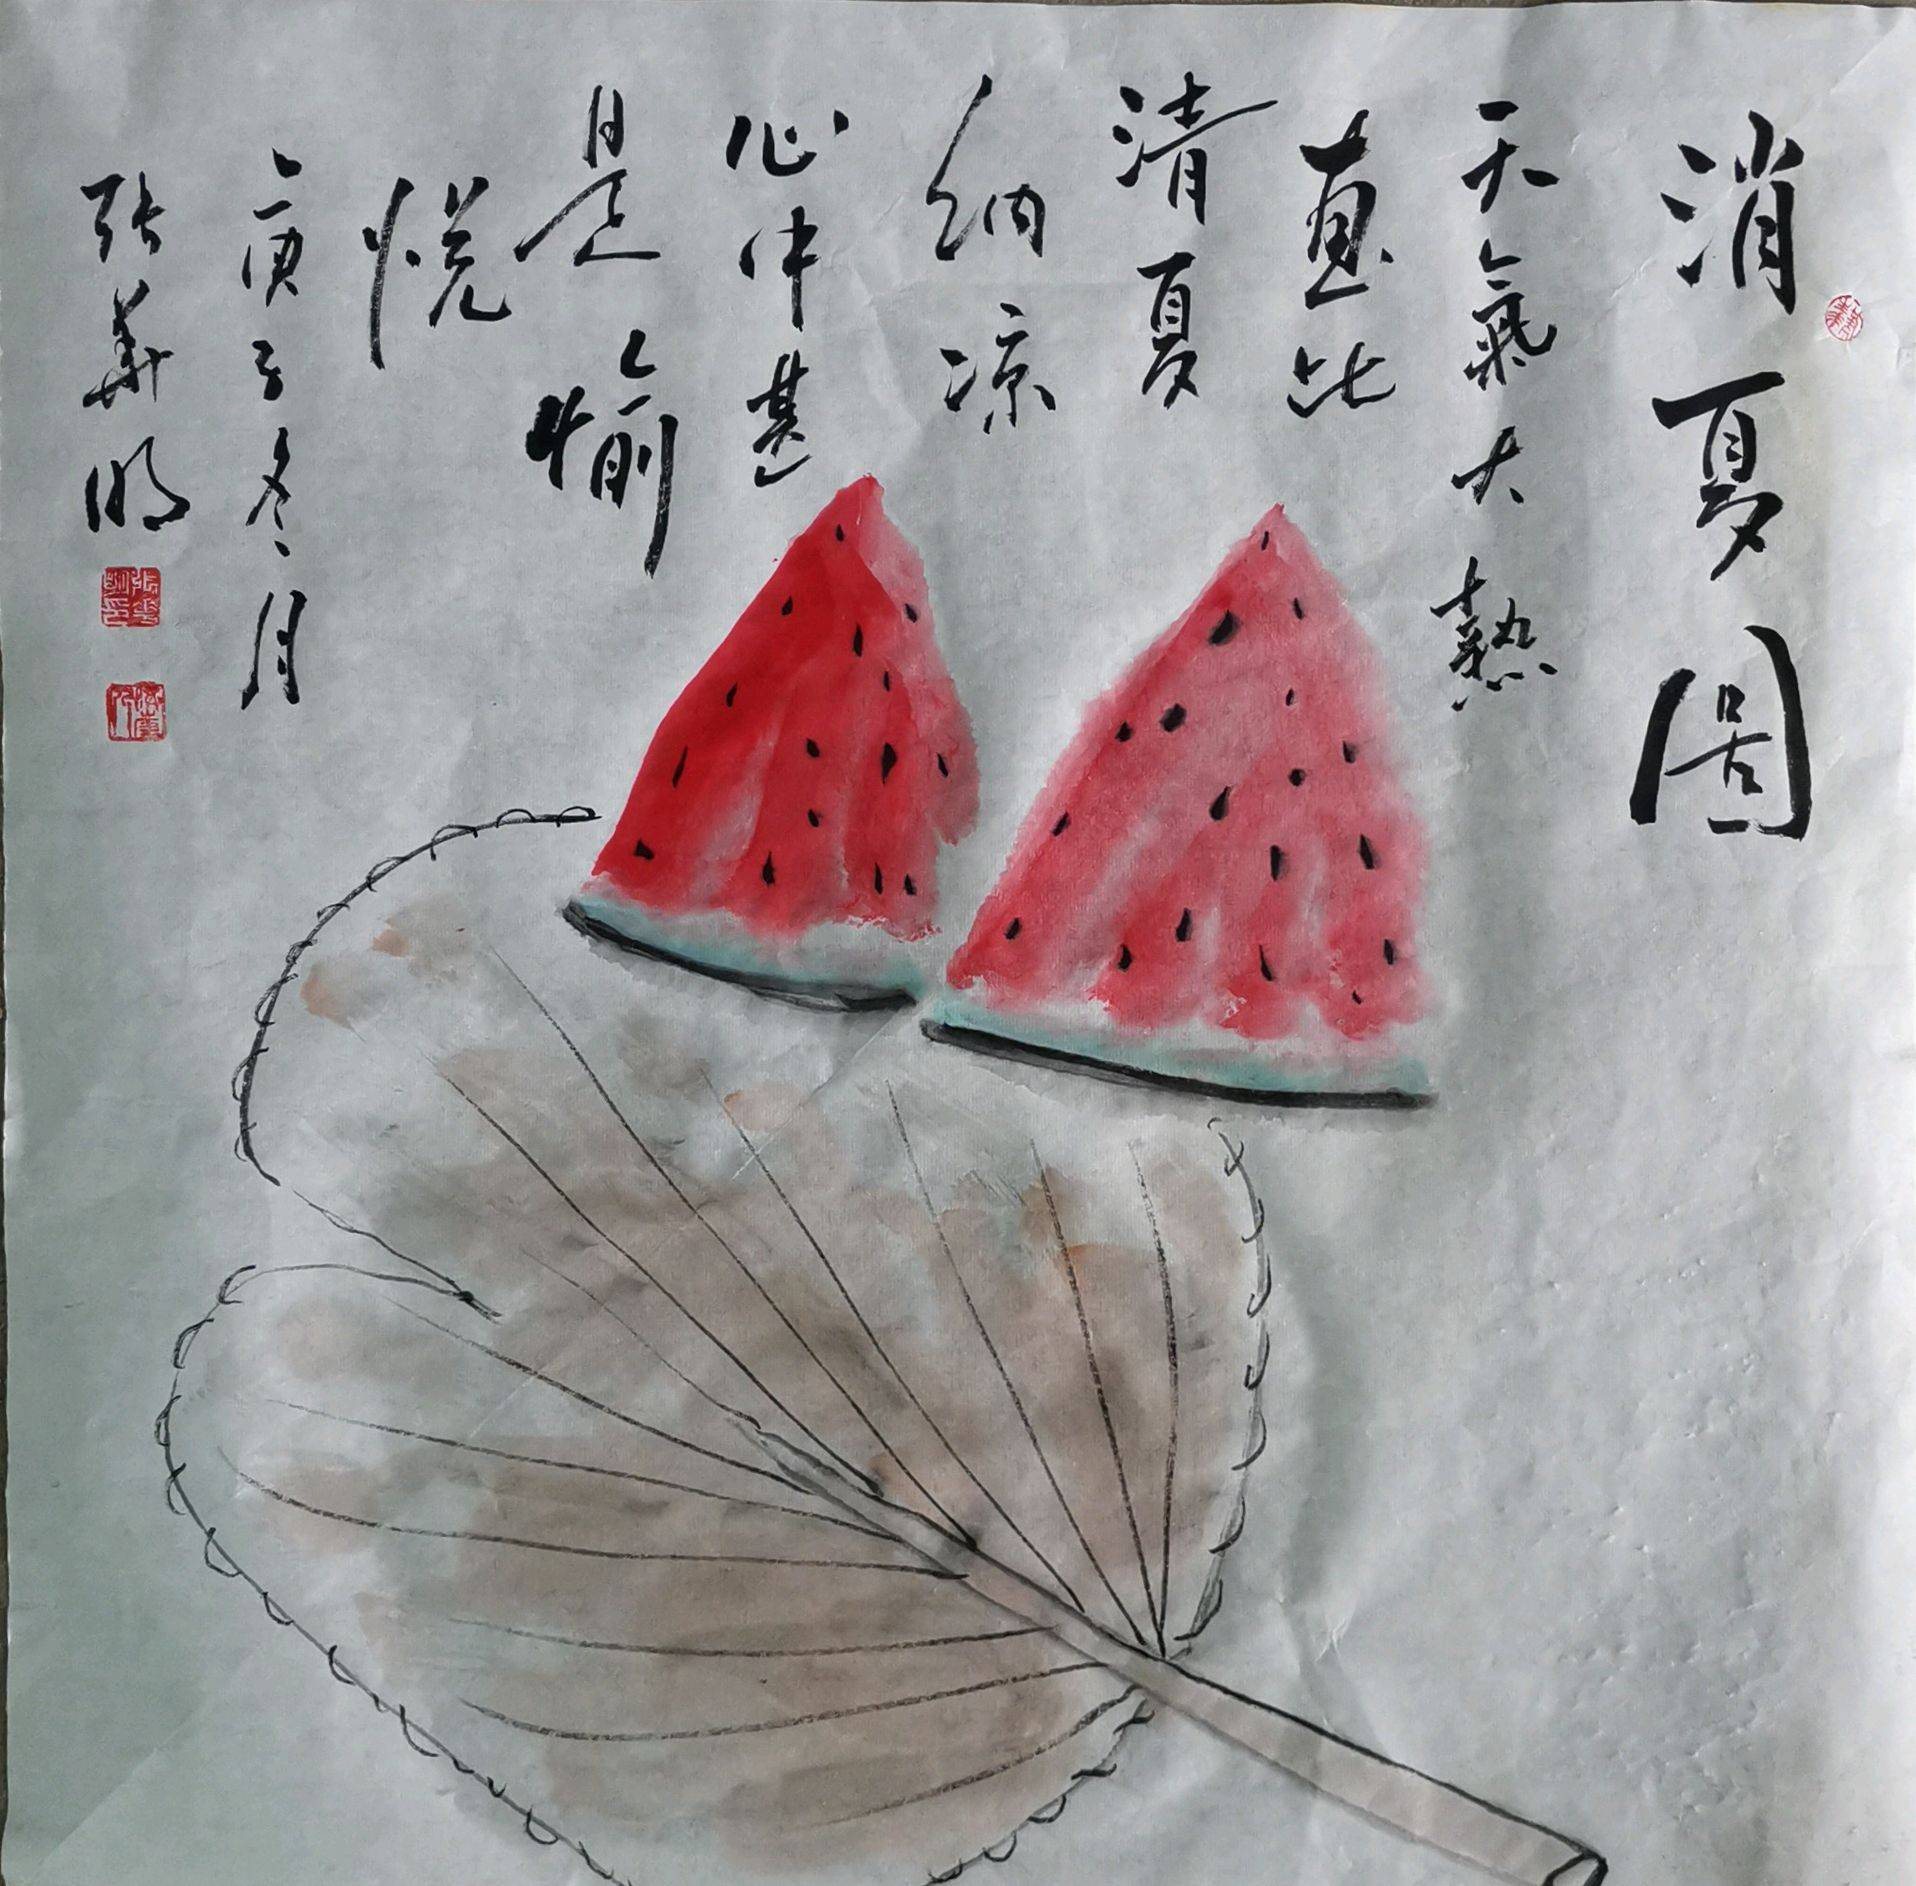 消夏圖
天氣大熱
畫此
清夏
納凉
心中甚
是愉
悦
庚子冬月
張華明
張華明印